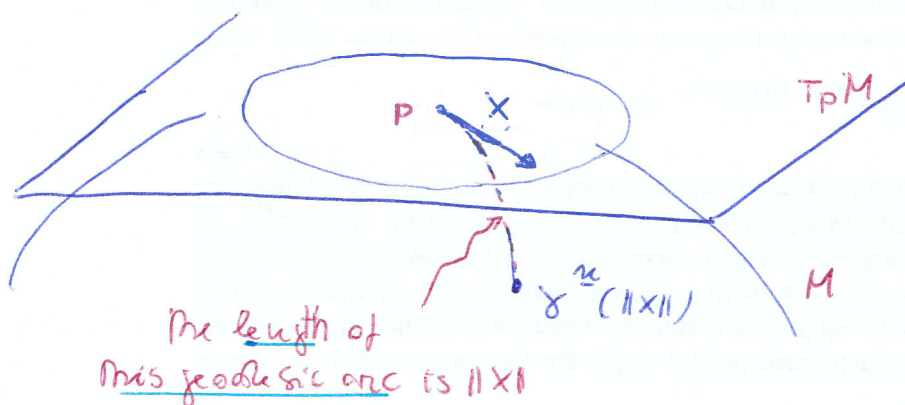 TpM
P
X
M
γᵘ (||X||)
The length of
this geodesic arc is ||X||